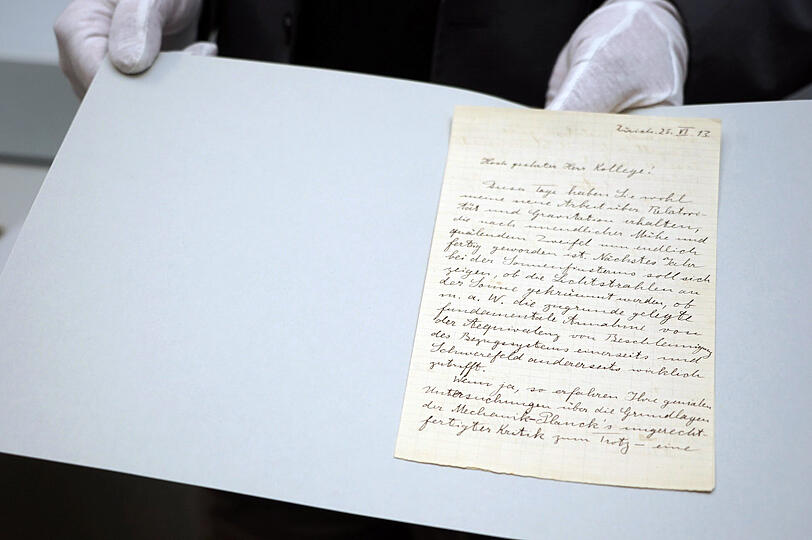 Zürich. 25. VI. 13.
Hoch geehrter Herr Kollege!
Dieser Tage haben Sie wohl
meine neue Arbeit über Relativi-
tät und Gravitation erhalten,
die nach unendlicher Mühe und
quälendem Zweifel nun endlich
fertig geworden ist. Nächstes Jahr
bei der Sonnenfinsternis soll sich
zeigen, ob die Lichtstrahlen an
der Sonne gekrümmt werden, ob
m. a. W. die zugrunde gelegte
fundamentale Annahme von
der Aequivalenz von Beschleunigung
des Bezugssystems einerseits und
Schwerefeld andererseits wirklich
zutrifft.
Wenn ja, so erfahren Ihre genialen
Untersuchungen über die Grundlagen
der Mechanik - Planck's ungerecht-
fertigter Kritik zum Trotz - eine